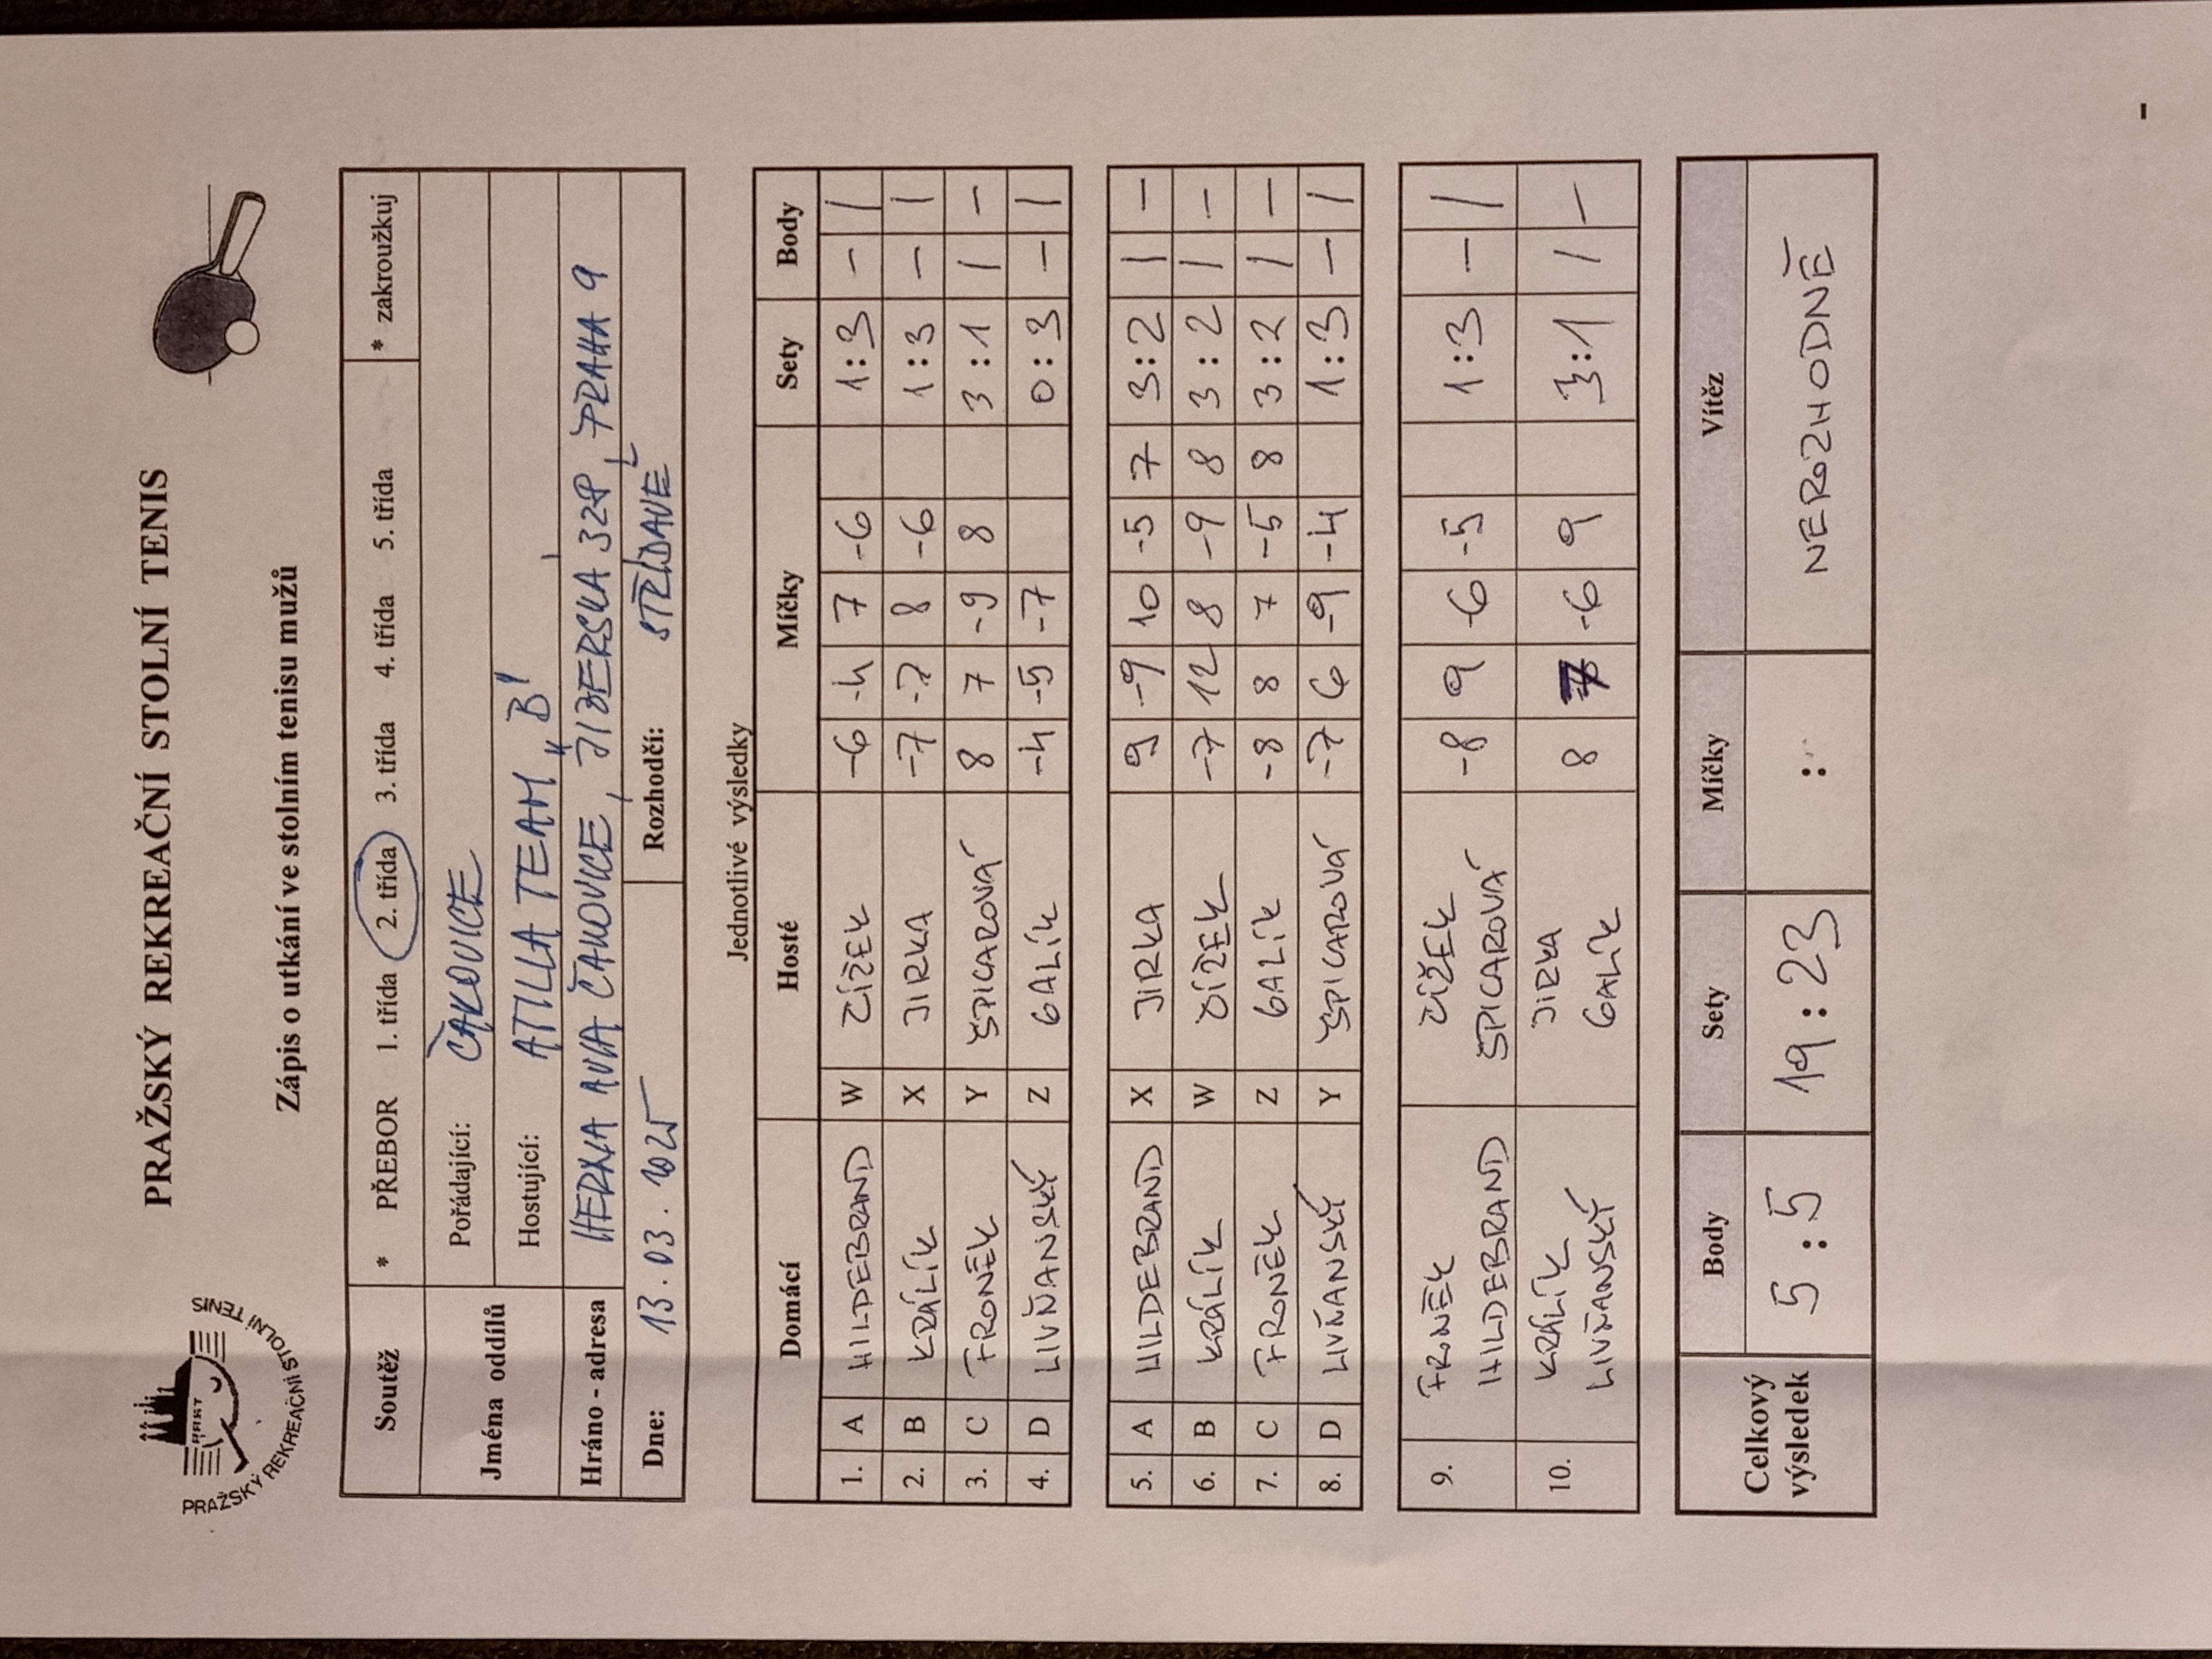 PRAŽSKÝ REKREAČNÍ STOLNÍ TENIS
PRAŽSKÝ REKREAČNÍ STOLNÍ TENIS
PRKST
Zápis o utkání ve stolním tenisu mužů
Soutěž * PŘEBOR 1. třída 2. třída 3. třída 4. třída 5. třída * zakroužkuj
Jména oddílů Pořádající: ČAKOVICE
Hostující: ATILLA TEAM „B"
Hráno - adresa HERNA AVIA ČAKOVICE, JIZERSKÁ 328, PRAHA 9
Dne: 13.03.2025 Rozhodčí: STŘÍDAVĚ
Jednotlivé výsledky
Domácí Hosté Míčky Sety Body
1. A HILDEBRAND W ČÍŽEK -6 -4 7 -6 1:3 - |
2. B KRÁLÍK X JIRKA -7 -7 8 -6 1:3 - |
3. C FRONĚK Y ŠPICAROVÁ 8 7 -9 8 3:1 | -
4. D LIVŇANSKÝ Z GALÍK -4 -5 -7 0:3 - |
5. A HILDEBRAND X JIRKA 9 -9 10 -5 7 3:2 | -
6. B KRÁLÍK W ČÍŽEK -7 12 8 -9 8 3:2 | -
7. C FRONĚK Z GALÍK -8 8 7 -5 8 3:2 | -
8. D LIVŇANSKÝ Y ŠPICAROVÁ -7 6 -9 -4 1:3 - |
9. FRONĚK ČÍŽEK -8 9 -6 -5 1:3 - |
HILDEBRAND ŠPICAROVÁ
10. KRÁLÍK JIRKA 8 7 -6 9 3:1 | -
LIVŇANSKÝ GALÍK
Celkový výsledek Body Sety Míčky Vítěz
5:5 19:23 : NEROZHODNĚ